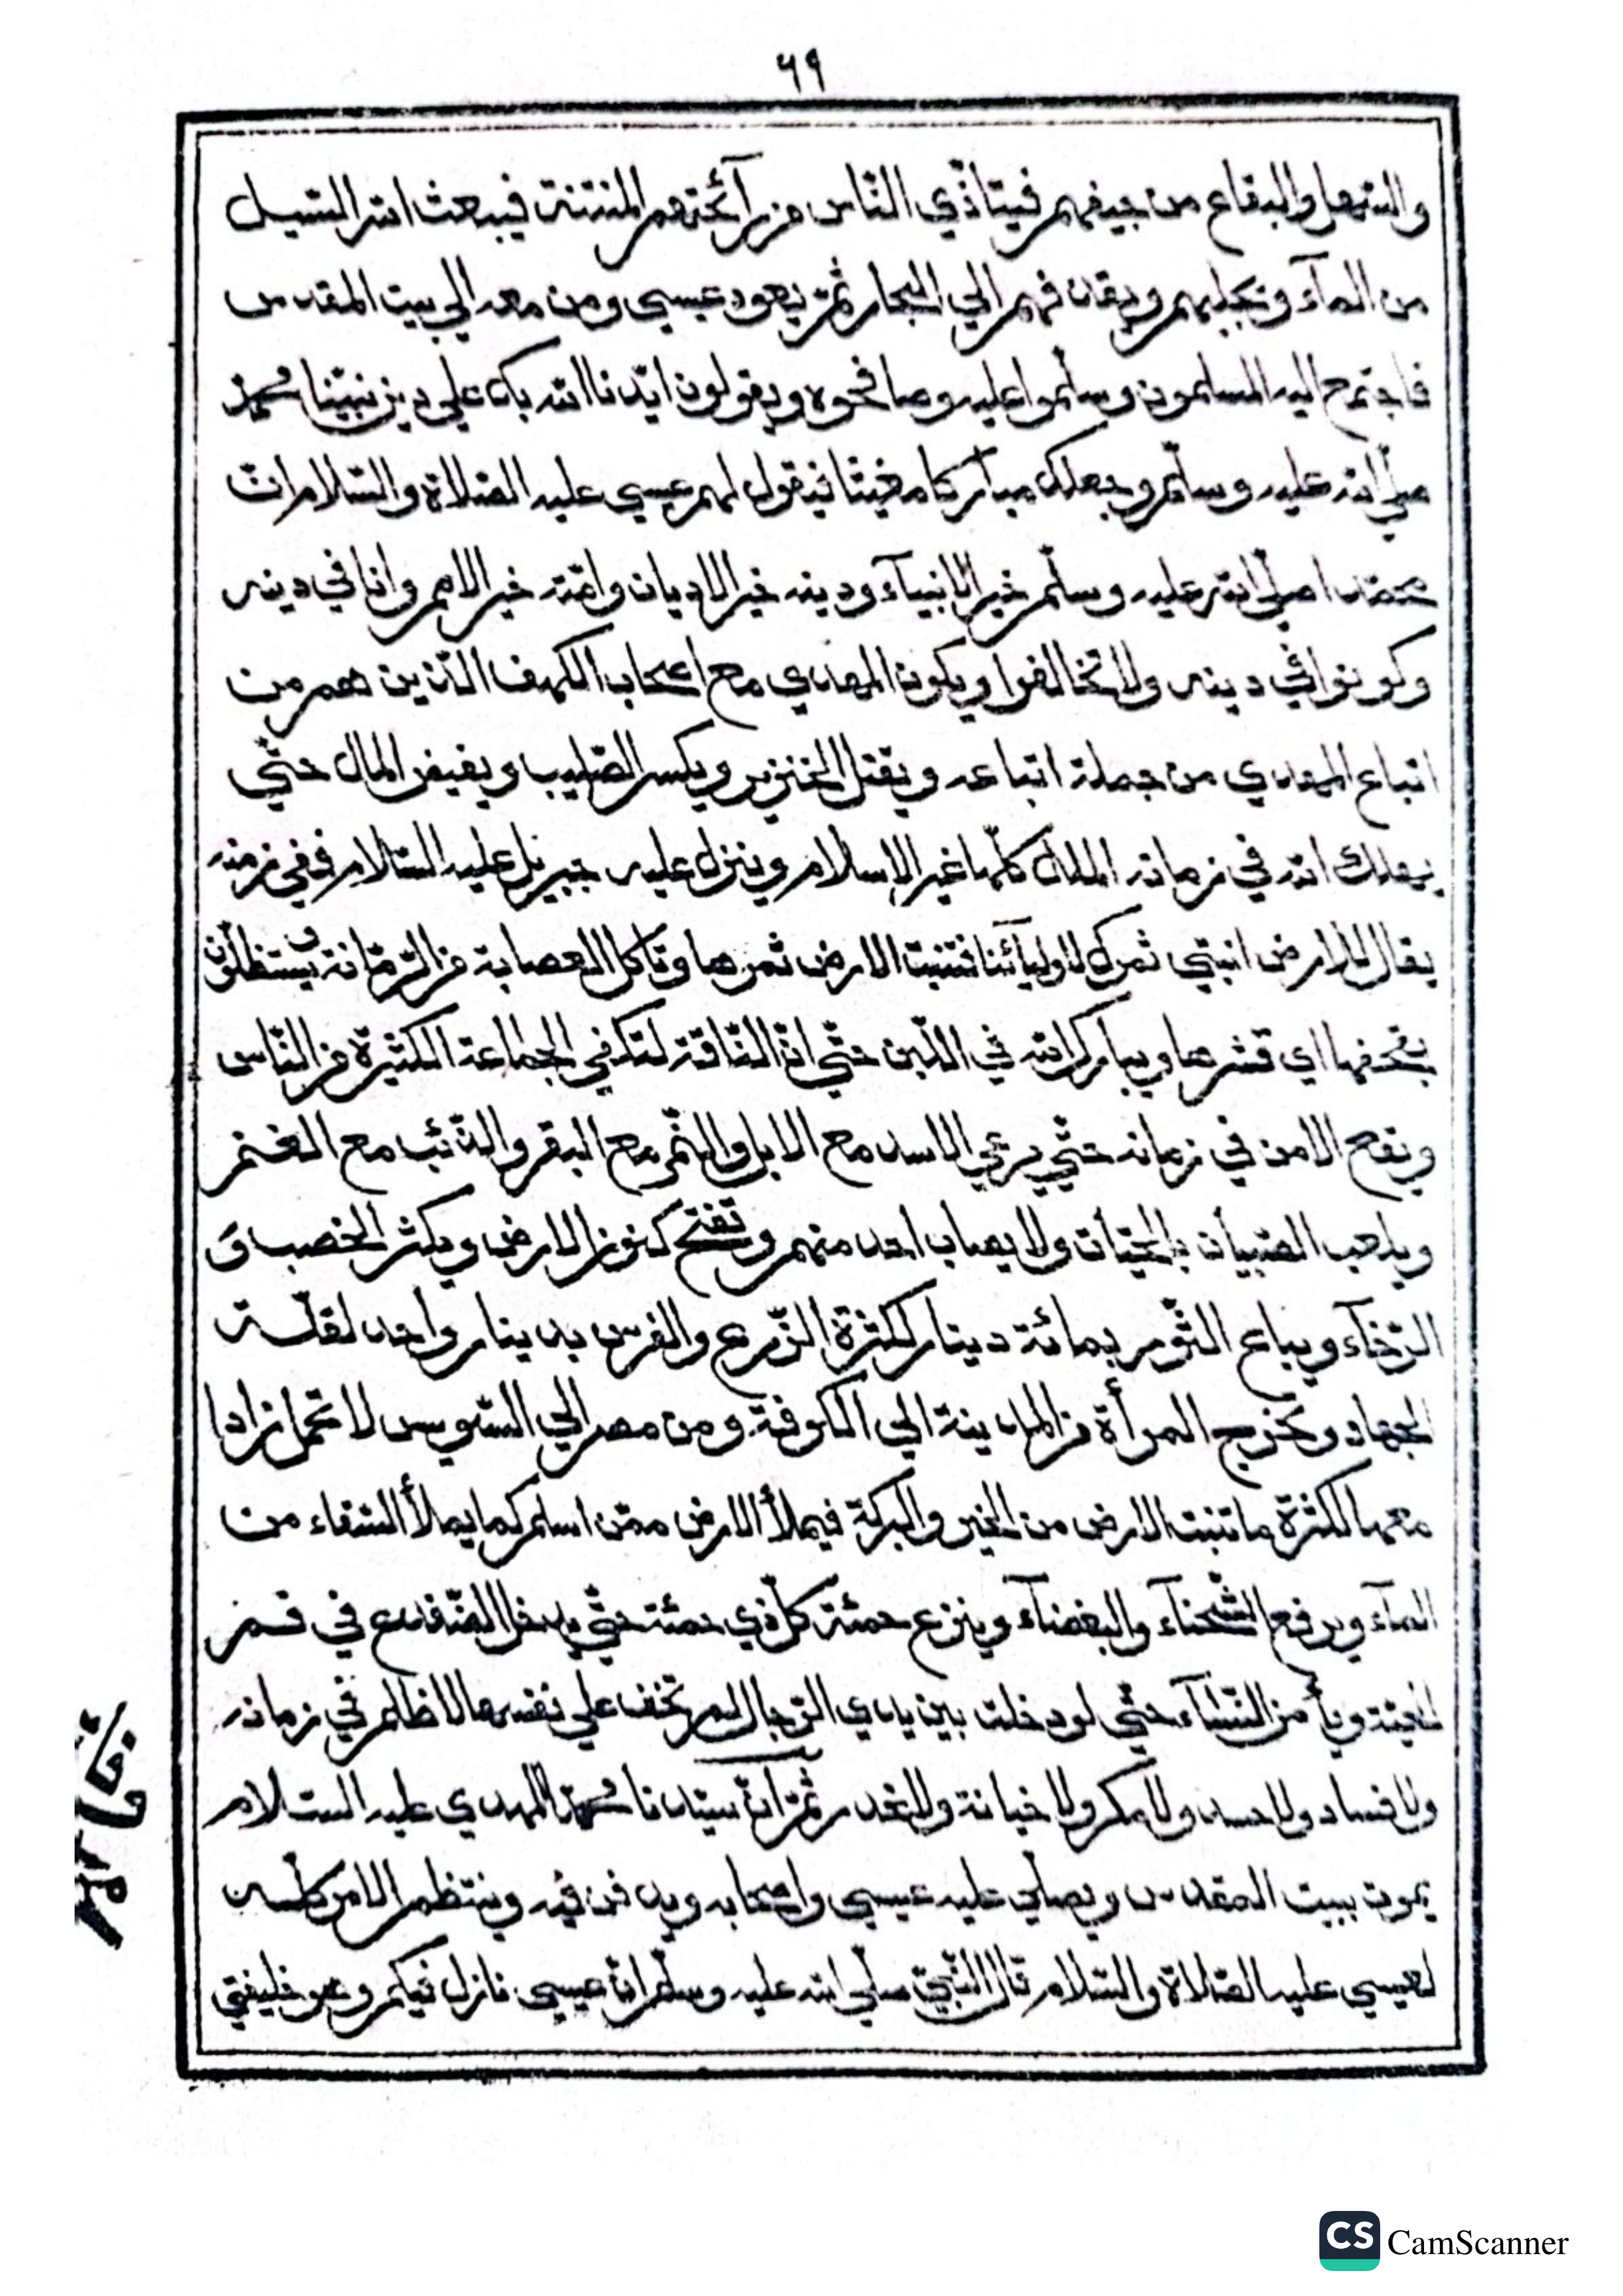 ٦٩
والسّهل والبقاع من جيفهم فيتأذّي النّاس من رآئحتهم المنتنة فيبعث الله السّيل
من المآء ونجليهم ويقذفهم الي البحار ثمّ يعود عيسي ومن معه الي بيت المقدس
فاجتمع اليه المسلمون وسلّموا عليه وصافحوه ويقولون ايّدنا الله بك علي دين نبيّنا محمّد
صلّي الله عليه وسلّم وجعلك مباركا مغيثا فيقول لهم عيسي عليه الصّلاة والسّلام انّ
محمّدا صلّي الله عليه وسلّم خير الانبيآء ودينه خير الاديان وامّته خير الامم وانا في دينه
وكونوا في دينه ولا تخالفوا ويكون المهدي مع اصحاب الكهف الّذين هم من
اتباع المهدي من جملة اتباعه ويقتل الخنزير ويكسر الصّليب ويفيض المال حتّي
يهلك الله في زمانه الملل كلّها غير الاسلام وينزل عليه جبريل عليه السّلام ففي زمنه
يقال للارض انبتي ثمرك لاوليآئنا فتنبت الارض ثمرها وتاكل العصابة من الرّمّانة ويستظلّون
بقحفها اي قشرها ويبارك الله في اللّبن حتّي انّ النّاقة لتكفي الجماعة الكثيرة من النّاس
ويقع الامن في زمانه حتّي يرعي الاسد مع الابل والنّمر مع البقر والذّئب مع الغنم
ويلعب الصّبيان بالحيّات ولا يصاب احد منهم وتفتح كنوز الارض ويكثر الخصب وَ
الرّخآء ويباع الثّور بمائة دينار لكثرة الزّرع والفرس بدينار واحد لقلّة
الجهاد وتخرج المرأة من المدينة الي الكوفة ومن مصر الي السّويس لا تحمل زادا
معها لكثرة ما تنبت الارض من الخير والبركة فيملأ الارض ممّن اسلم كما يملأ السّقاء من
المآء ويرفع الشّحناء والبغضآء وينزع حمئة كلّ ذي حمئة حتّي يدخل الضّفدع في فم
الحيّة ويأمن النّسآء حتّي لو دخلت بين يدي الرّجال لم تخف علي نفسها لا ظالم في زمانه
ولا فساد ولا حسد ولا مكر ولا خيانة ولا غدر ثمّ انّ سيّدنا محمّد المهدي عليه السّلام
يموت ببيت المقدس ويصلّي عليه عيسي واصحابه ويدفن فيه وينتظم الامر كلّه
لعيسي عليه الصّلاة والسّلام قال النّبيّ صلّي الله عليه وسلّم انّ عيسي نازل فيكم وهو خليفتي